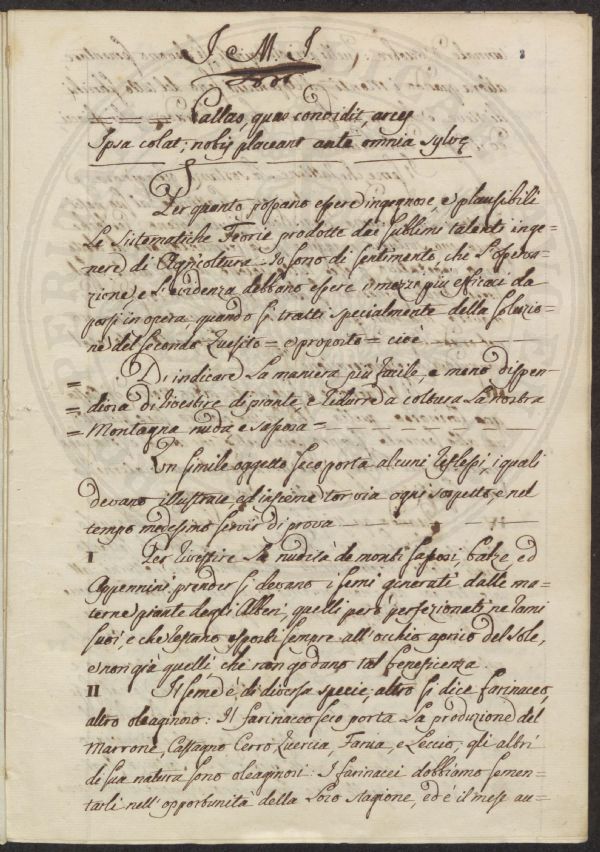 J M J
= = = Pallas, quas condidit, arces
Ipsa colat: nobis placeant ante omnia sylvę
Per quanto possano essere ingegnose, e plausibili
le Sistematiche Teorie prodotte dai sublimi talenti inge=
nere di Agricoltura. Io sono di sentimento, che l'Osserva=
zione, e l'evidenza debbano essere i mezzi più efficaci da
porsi in opera, quando si tratti specialmente della soluzio=
ne del secondo Quesito = proposto = cioè
= Di indicare la maniera più facile, e meno dispen=
= diosa di rivestire di piante, e ridurre a coltura la nostra
= Montagna nuda e sassosa =
Un simile oggetto seco porta alcuni riflessi, i quali
devano illustrare ed insieme tor via ogni sospetto, e nel
tempo medesimo servir di prova
I Per rivestire la nudità de monti sassosi, balze ed
Appennini prender si devano i semi generati dalle ma=
terne piante degli Alberi, quelli però perfezionati ne rami
suoi, e che restano esposti sempre all'occhio aprico del sole,
e non già quelli che non godano tal beneficenza.
II Il seme è di diversa specie, altro si dice farinaceo,
altro oleaginoso: Il farinaceo seco porta la produzione del
Marrone, Castagno Cerro Quercia, Farnia, e Leccio; gli altri
di sua natura sono oleaginosi: I farinacei dobbiamo semen=
tarli nell'opportunità della loro stagione, ed è il mese au=